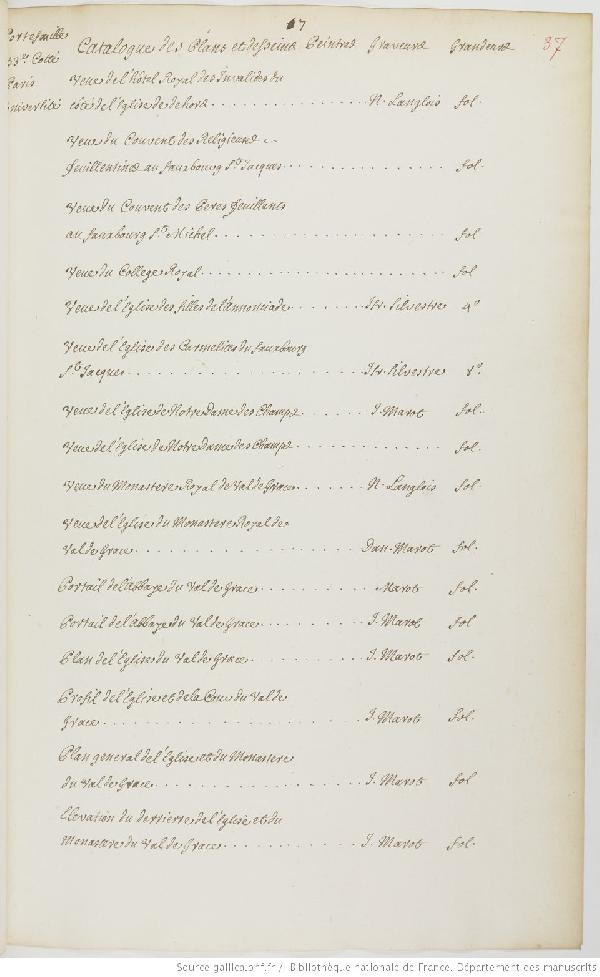 17
37
Portefeuille
53e. Cotté
Paris
université
Catalogue des Plans et desseins Peintres Graveurs Grandeurs
Veue de l'hôtel Royal des Invalides du
côté de l'Eglise de dehors . . . . . . . . . . . . N. Langlois fol.
Veue du Couvent des Religieuses
feuillentines au fauxbourg St. Jacques . . . . . . . . . . . . fol.
Veue du Couvent des Peres feuillents
au fauxbourg St. Michel . . . . . . . . . . . . fol
Veue du College Royal . . . . . . . . . . . . fol
Veue de l'Eglise des filles de l'annonciade . . . . . . Isr. Silvestre 4o
Veue de l'Eglise des Carmelites du fauxbourg
St. Jacques . . . . . . . . . . . . Isr. Silvestre 4o.
Veue de l'Eglise de Notre Dame des Champs . . . . . . J. Marot fol.
Veue de l'Eglise de Notre Dame des Champs . . . . . . . . . . . . fol.
Veue du Monastere Royal de Val de Grace . . . . . . N. Langlois fol.
Veue de l'Eglise du Monastere Royal de
Val de Grace . . . . . . . . . . . . Dan. Marot fol.
Portail de l'abbaye du Val de Grace . . . . . . . . . Marot fol.
Portail de l'abbaye du Val de Grace . . . . . . . . . J. Marot fol
Plan de l'Eglise du Val de Grace . . . . . . . . . J. Marot fol.
Profil de l'Eglise et de la Cour du Val de
Grace . . . . . . . . . . . . J. Marot fol.
Plan general de l'Eglise et du Monastere
du Val de Grace . . . . . . . . . . . . J. Marot fol
Elevation du derriere de l'Eglise et du
Monastere du Val de Grace . . . . . . . . . J. Marot fol.
Source gallica.bnf.fr / Bibliothèque nationale de France. Département des manuscrits